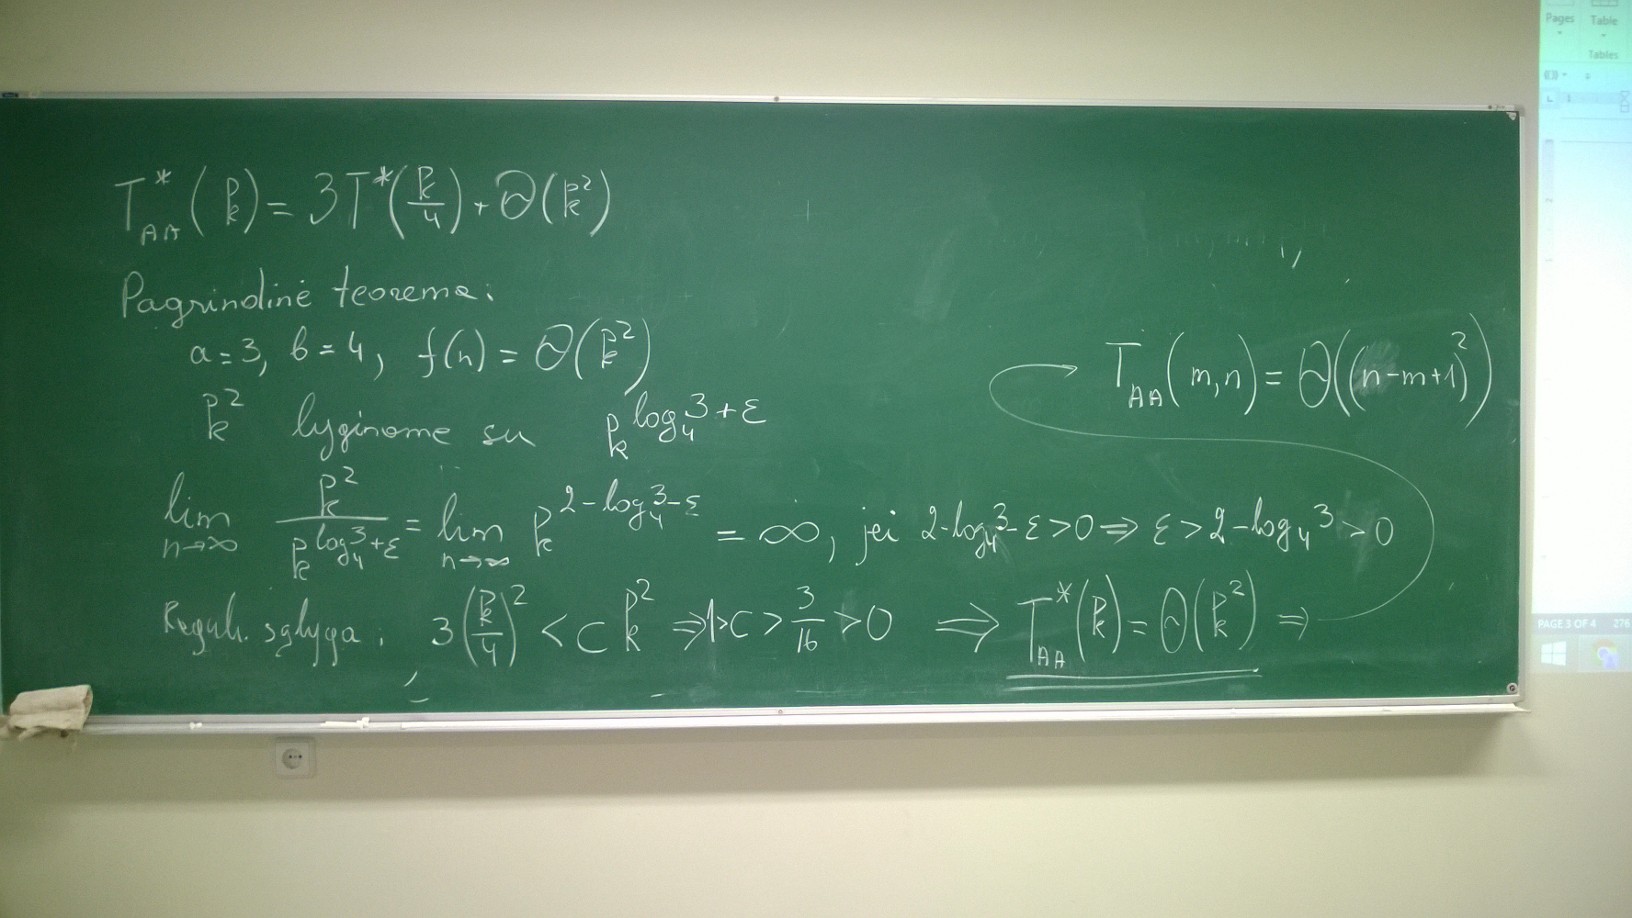 T*_AA(k) = 3T*(k/4) + Θ(k²)
Pagrindinė teorema:
a=3, b=4, f(n) = Θ(k²)
k² lyginame su k^(log₄3+ε)
lim n→∞ k²/k^(log₄3+ε) = lim n→∞ k^(2-log₄3-ε) = ∞, jei 2-log₄3-ε>0 ⇒ ε>2-log₄3>0
Regul. sąlyga: 3(k/4)² < c k² ⇒ 1>c>3/16>0 ⇒ T*_AA(k) = Θ(k²) ⇒
T_AA(m,n) = Θ((n-m+1)²)
Pages
Table
Tables
PAGE 3 OF 4 276